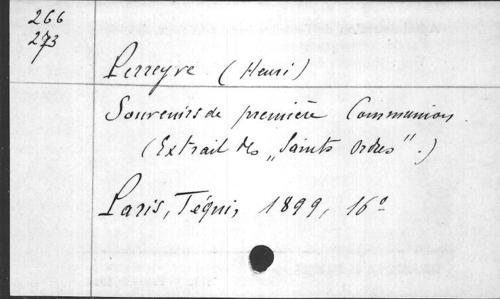 266
273
Perreyve (Henri)
Souvenirs de première Communion.
(Extrait des „Saints Ordres".)
Paris, Téqui, 1899, 16°